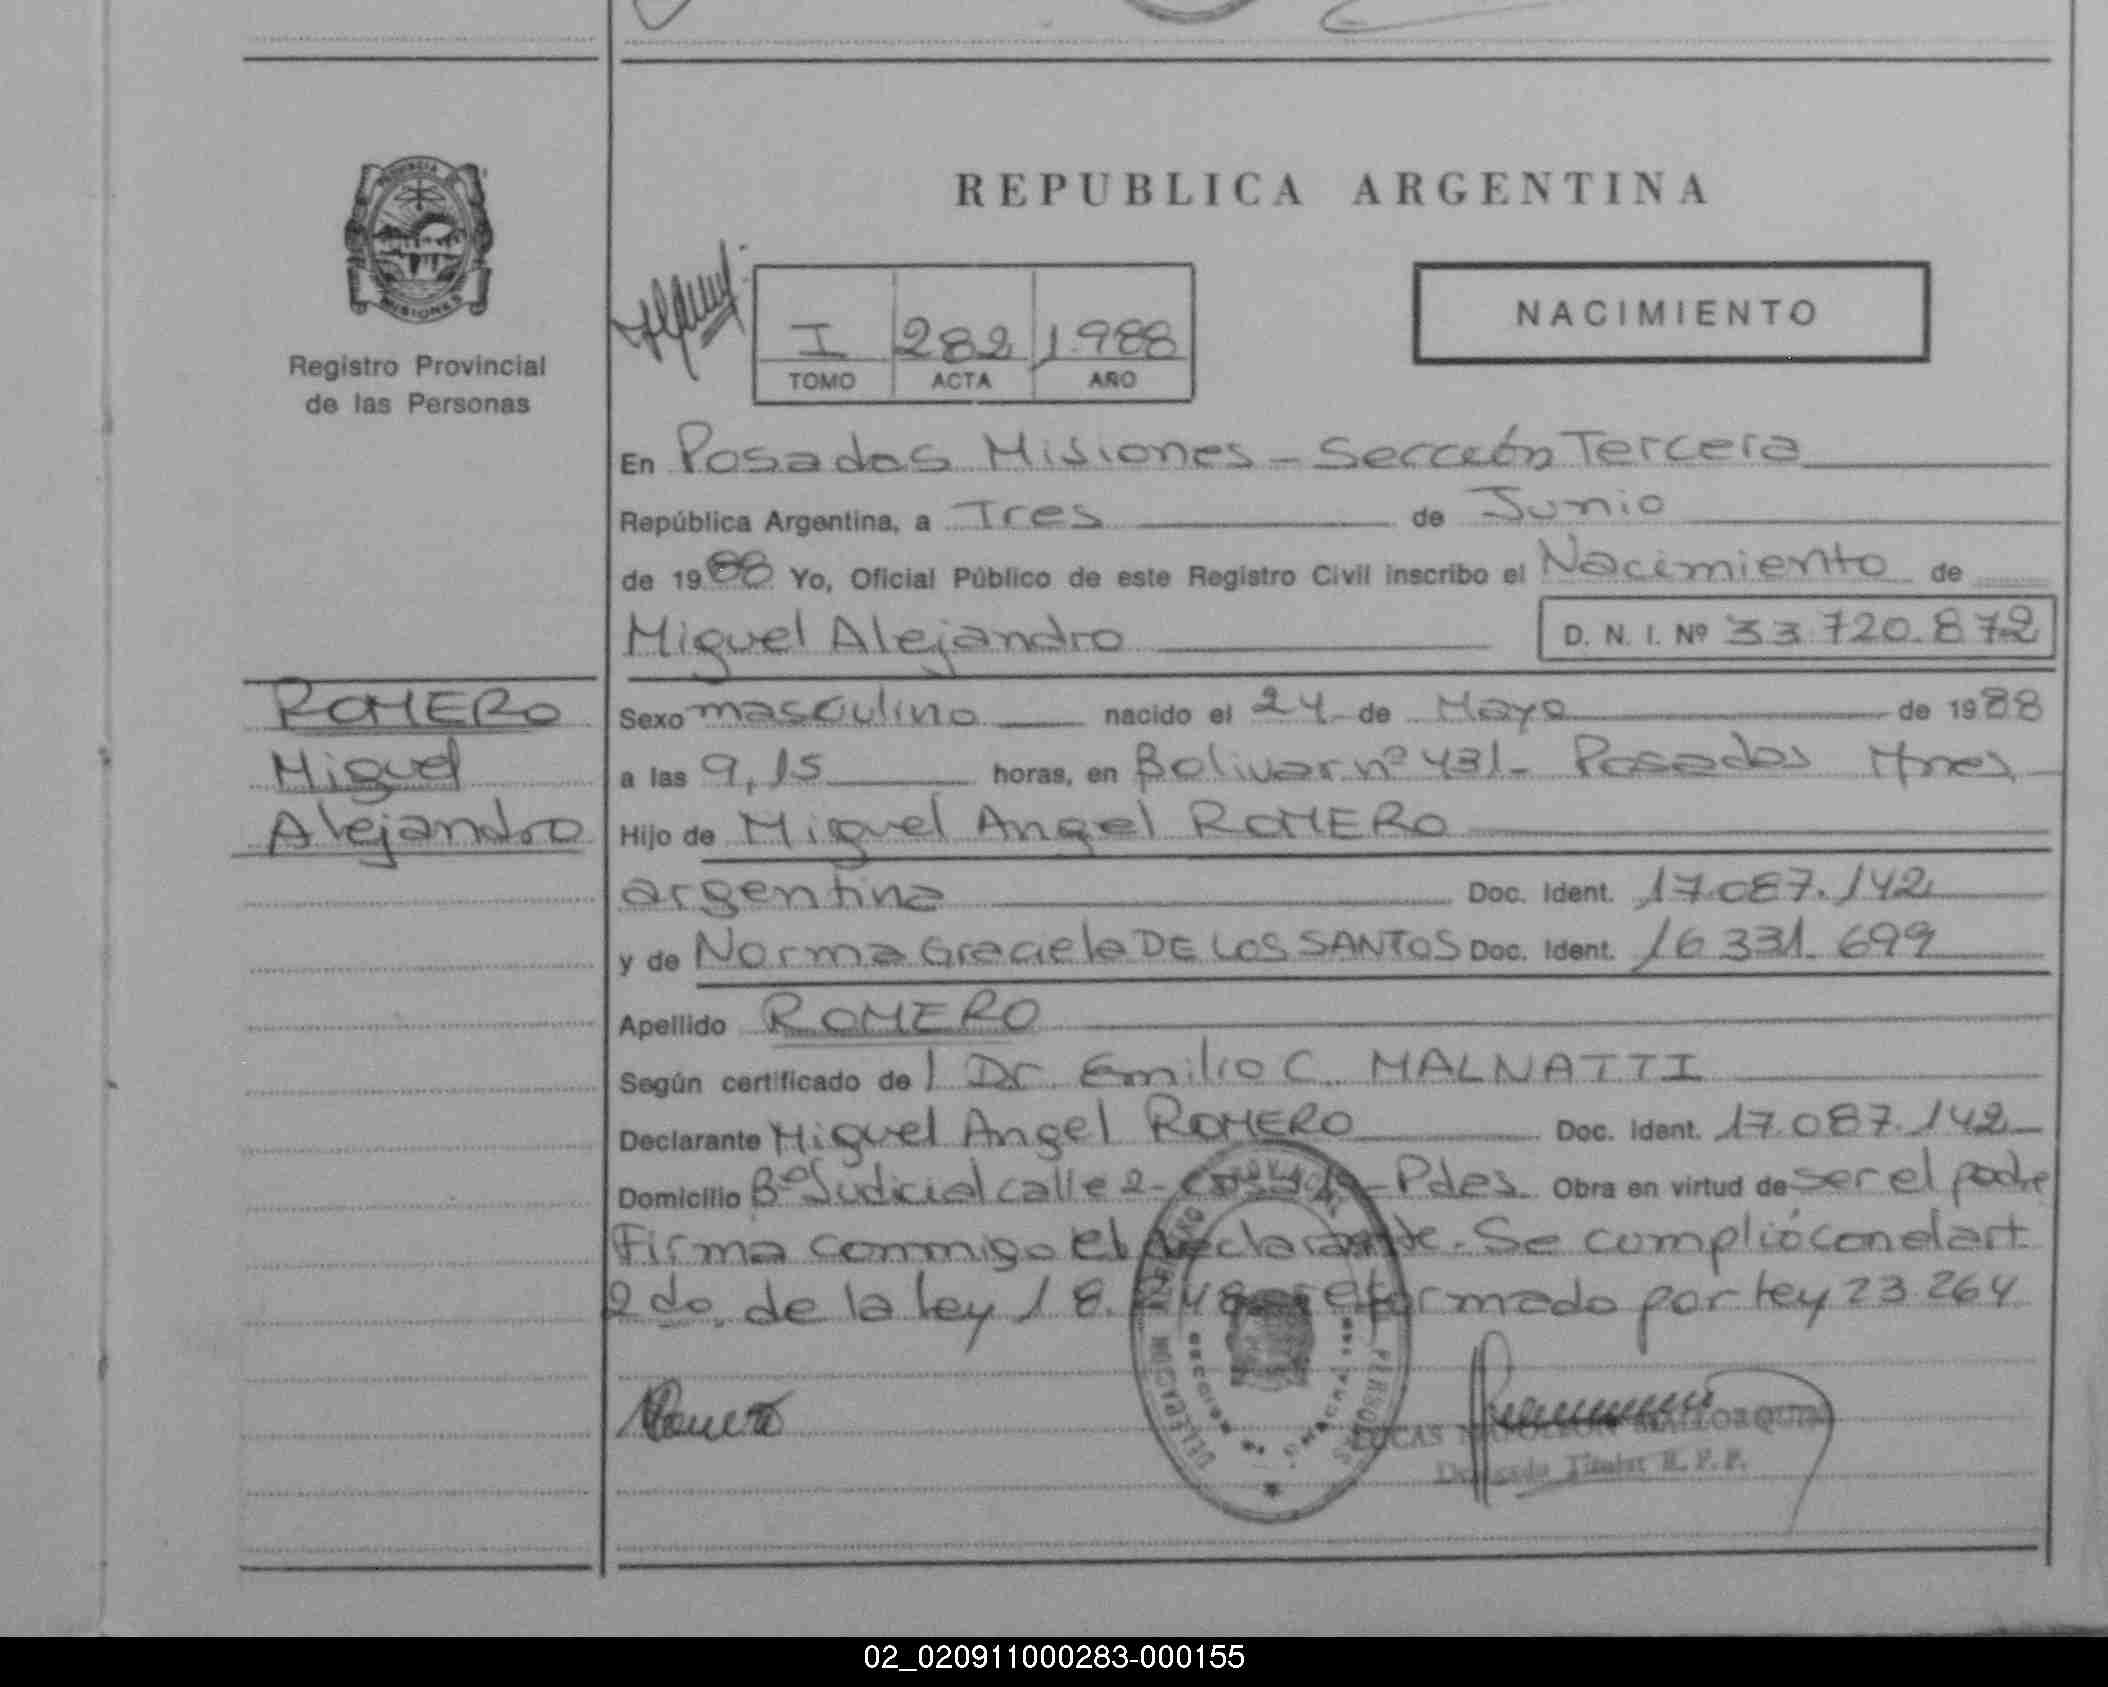 REPUBLICA ARGENTINA
PROVINCIA DE
MISIONES
Registro Provincial
de las Personas
I 282 1988
TOMO ACTA AÑO
NACIMIENTO
En Posadas Misiones - Sección Tercera
República Argentina, a Tres de Junio
de 1988 Yo, Oficial Público de este Registro Civil inscribo el Nacimiento de
Miguel Alejandro D. N. I. Nº 33.720.872
ROMERO
Miguel
Alejandro
Sexo masculino nacido el 24 de Mayo de 1988
a las 9,15 horas, en Bolivar nº 431 - Posadas Mnes
Hijo de Miguel Angel ROMERO
argentina Doc. Ident. 17.087.142
y de Norma Graciela DE LOS SANTOS Doc. Ident. 16.331.699
Apellido ROMERO
Según certificado de l Dr. Emilio C. MALNATTI
Declarante Miguel Angel ROMERO Doc. Ident. 17.087.142
Domicilio Bº Judicial calle 2 - - Pdas. Obra en virtud de ser el padre
Firma conmigo el declarante. Se cumplió con el art
2do. de la ley 18.248 reformado por ley 23.264
LUCAS NAPOLEON MALLORQUIN
Delegado Titular R. P. P.
02_020911000283-000155